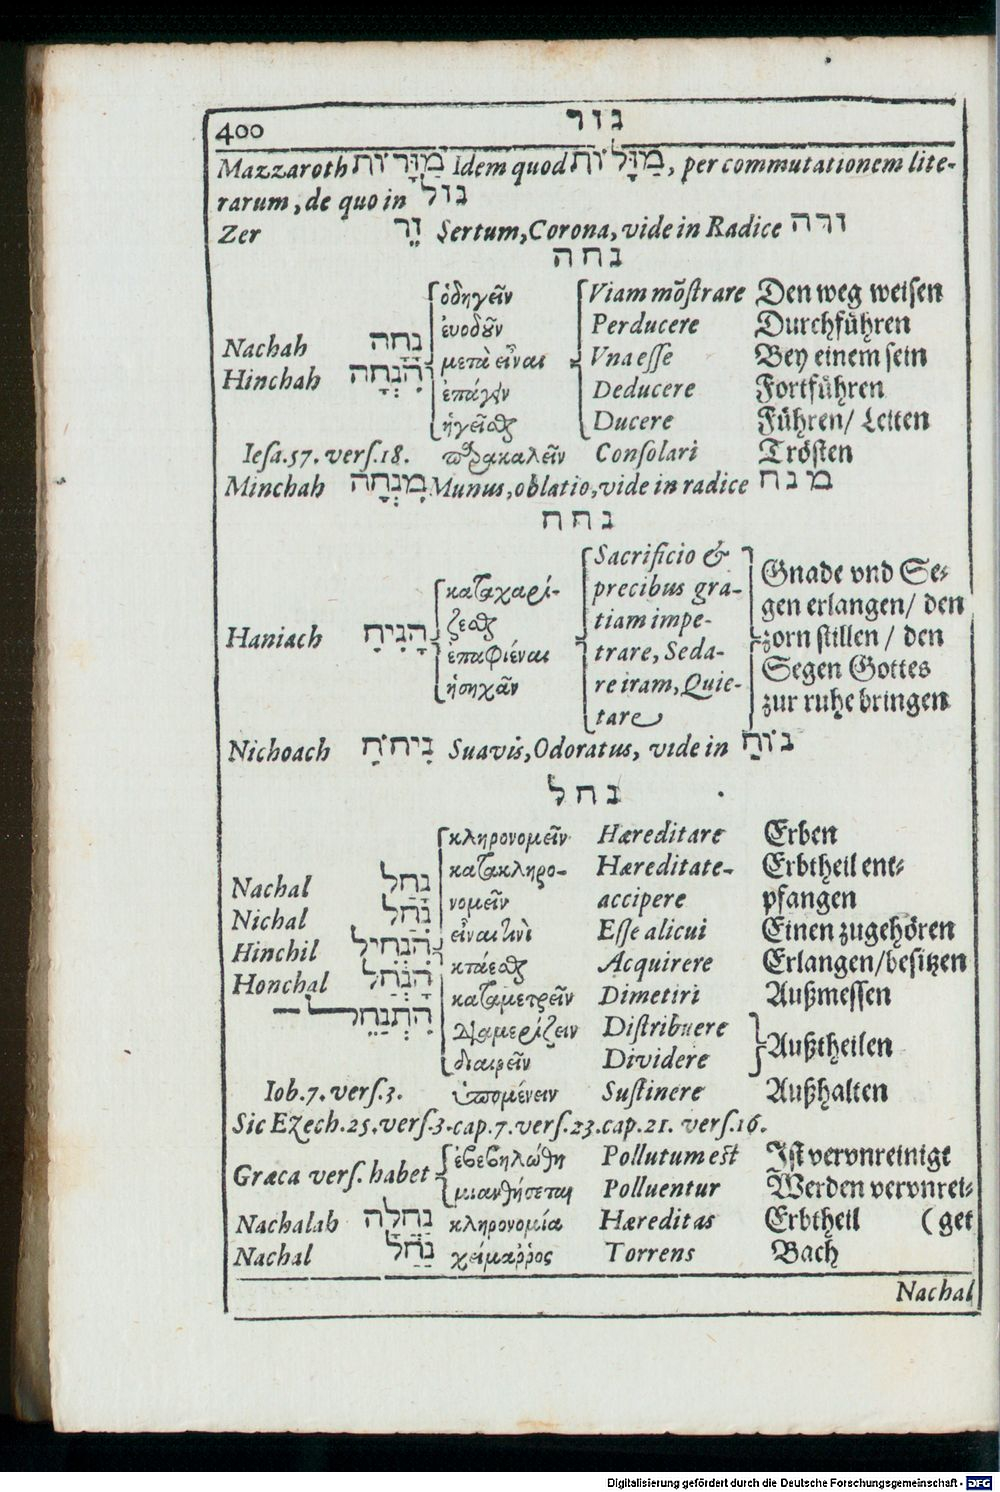 400 נזר
Mazzaroth מַזָּרוֹת Idem quod מַזָּלוֹת, per commutationem lite-
rarum, de quo in נזל
Zer זֵר Sertum, Corona, vide in Radice זרה
נחה
ὁδηγεῖν Viam mõstrare Den weg weisen
ἐυοδοῦν Perducere Durchführen
Nachah נָחָה μετὰ εἶναι Vna esse Bey einem sein
Hinchah הִנְחָה ἐπάγειν Deducere Fortführen
ἡγεῖσθαι Ducere Führen/ Leiten
Iesa.57. vers.18. παρακαλεῖν Consolari Trösten
Minchah מִנְחָה Munus, oblatio, vide in radice מנח
נחח
Sacrificio &
καταχαρί- precibus gra- Gnade vnd Se-
ζεσθαι tiam impe- gen erlangen/ den
Haniach הָנִיחָ ἐπαφιέναι trare, Seda- zorn stillen / den
ἡσηχᾶν re iram, Quie- Segen Gottes
tare zur ruhe bringen
Nichoach נִיחֹחַ Suavis, Odoratus, vide in נוח
נחל
κληρονομεῖν Hæreditare Erben
κατακληρο- Hæreditate- Erbtheil ent-
Nachal נָחַל νομεῖν accipere pfangen
Nichal נִחַל εἶναι τινὶ Esse alicui Einen zugehören
Hinchil הִנְחִיל κτάεσθαι Acquirere Erlangen/besitzen
Honchal הָנְחַל καταμετρεῖν Dimetiri Außmessen
הִתְנַחֵל διαμερίζειν Distribuere
διαιρεῖν Dividere Außtheilen
Iob.7. vers.3. ὑπομένειν Sustinere Außhalten
Sic Ezech.25. vers.3. cap.7. vers.23. cap.21. vers.16.
Græca vers. habet ἐβεβηλώθη Pollutum est Ist vervnreinigt
μιανθήσεται Polluentur Werden vervnrei-
Nachalah נַחֲלָה κληρονομία Hæreditas Erbtheil (get
Nachal נַחַל χείμαῤῥος Torrens Bach
Nachal
Digitalisierung gefördert durch die Deutsche Forschungsgemeinschaft - DFG